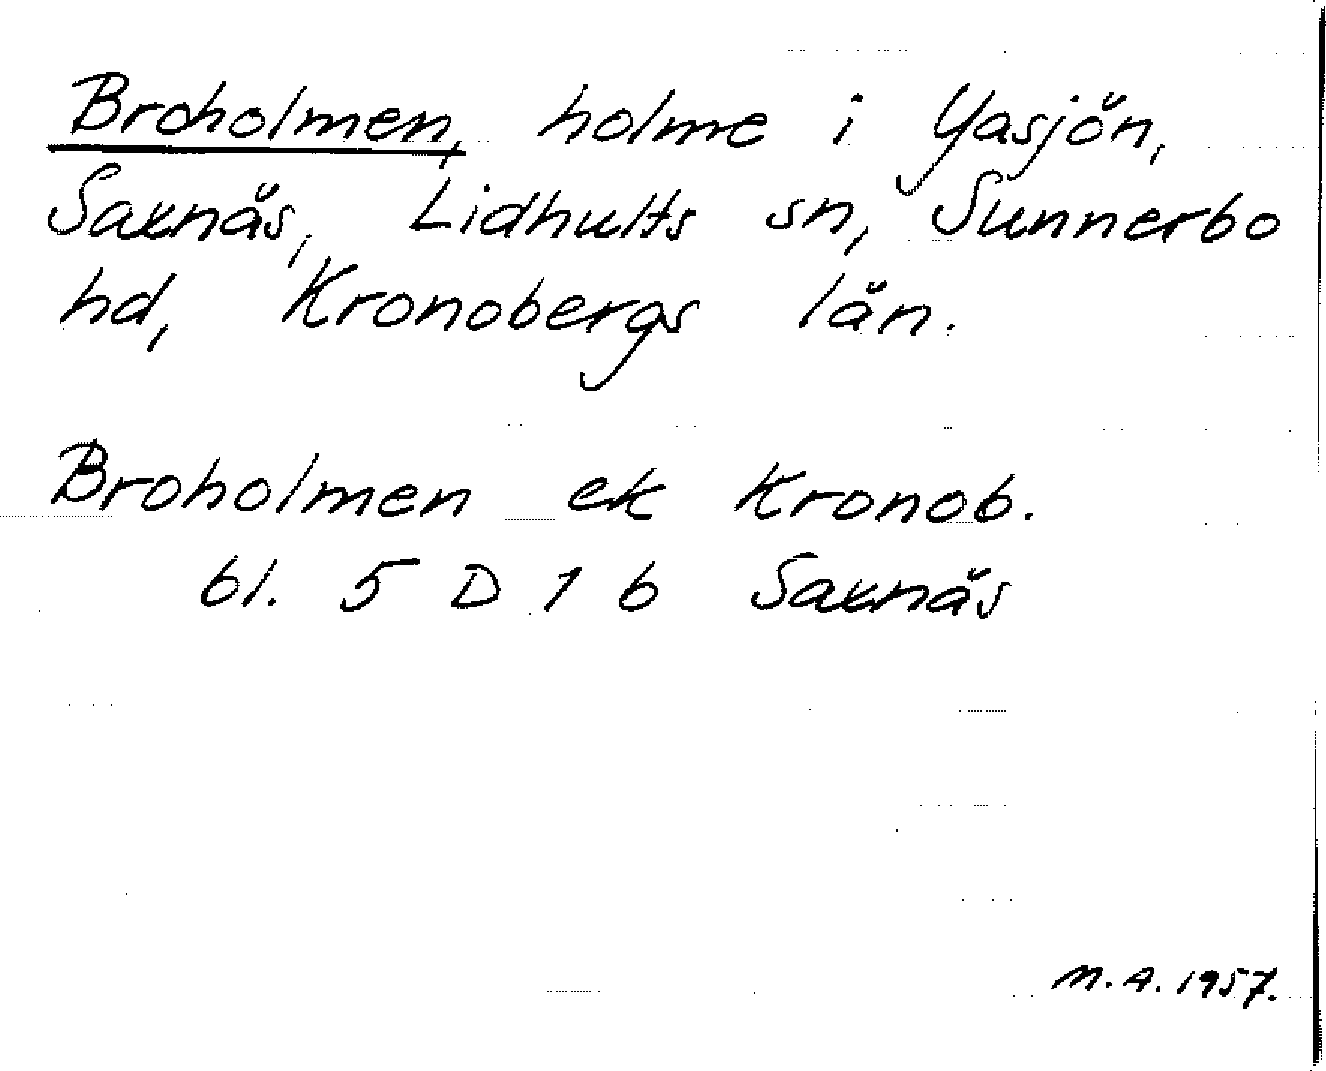 Broholmen, holme i Yasjön,
Saxnäs, Lidhults sn, Sunnerbo
hd, Kronobergs län.
Broholmen ek Kronob.
bl. 5 D 1 b Saxnäs
M.A. 1957.